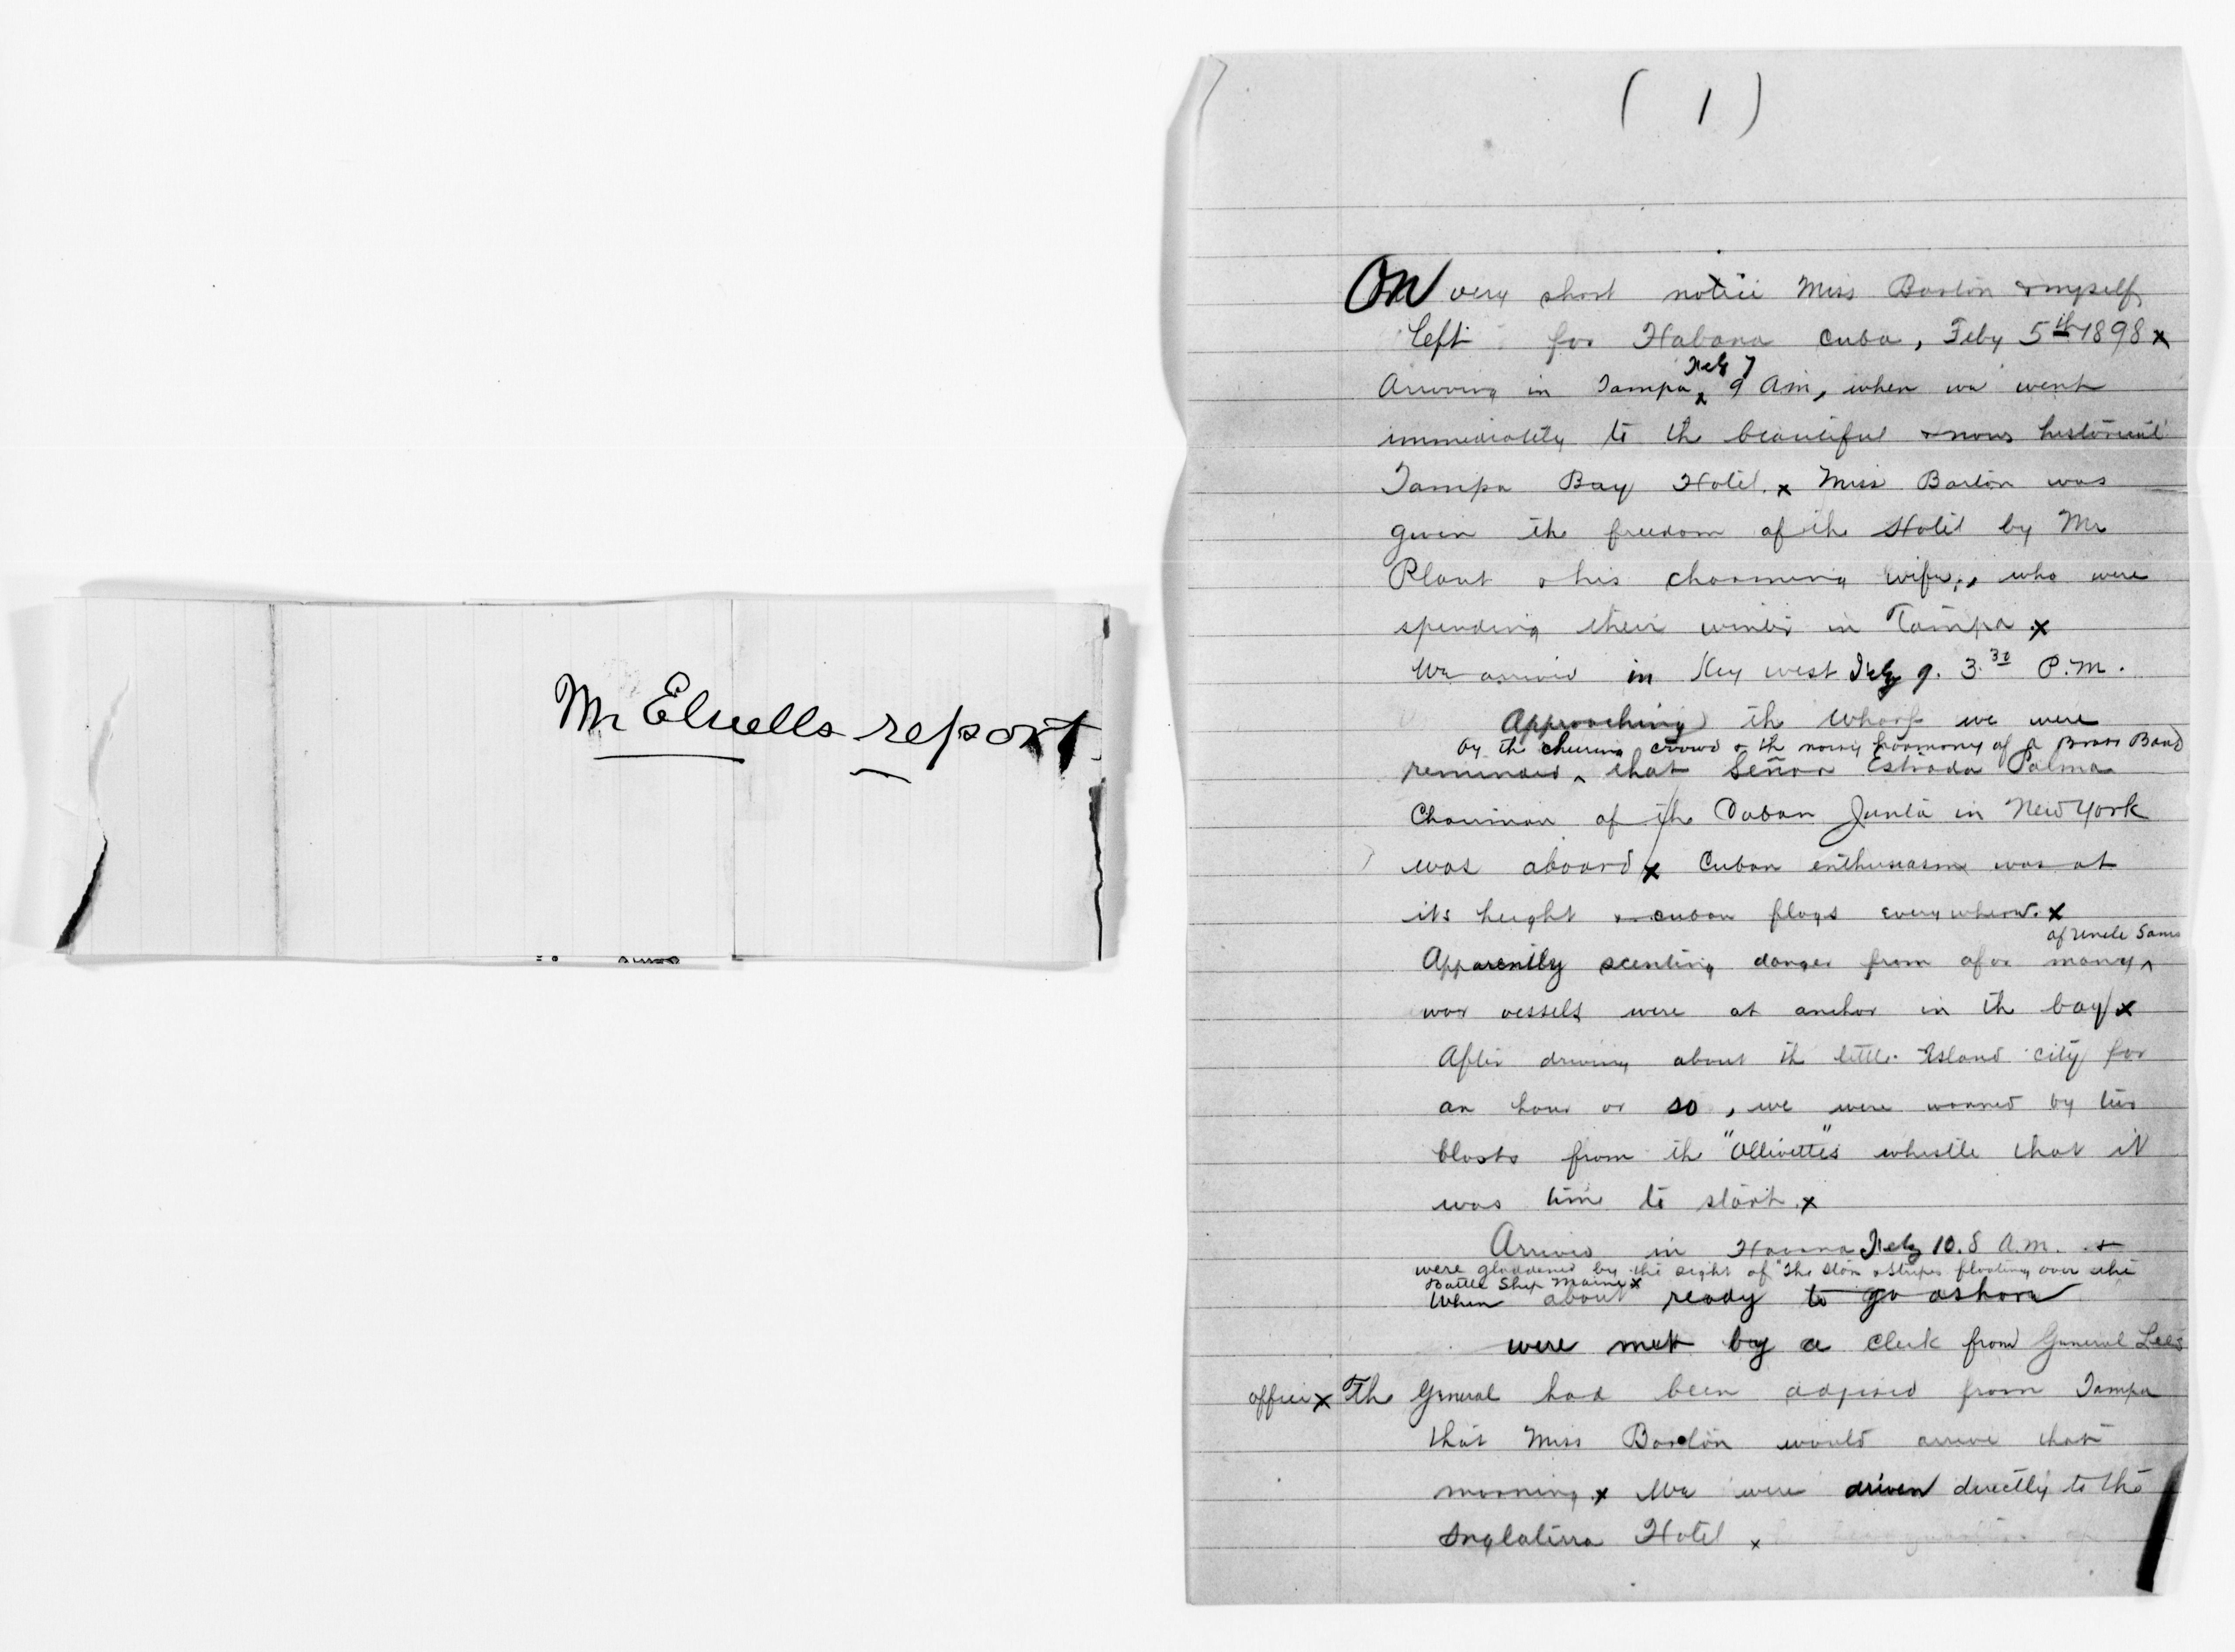 Mr Elwells report
( 1 )
On very short notice Miss Barton & myself
left for Habana Cuba, Feby 5th 1898 x
Arriving in Tampa ^ Feby 7 9 A.m, when we went
immediately to the beautiful & now historical
Tampa Bay Hotel. x Miss Barton was
given the freedom of the Hotel by Mr
Plant & his charming wife, who were
spending their winter in Tampa x
We arrived in Key west Feby 9. 3.30 P.M.
Approaching the wharf we were
by the cheering crowd & the noisy harmony of a Brass Band
reminded ^ that Señor Estrada Palma
Chairman of the Cuban Junta in New York
was aboard x Cuban enthusiasm was at
its height & cuban flags everywhere. x
of Uncle Sams
Apparently scenting danger from afar many ^
war vessels were at anchor in the bay x
After driving about the little Island city for
an hour or so, we were warned by two
blasts from the "Ollivette's" whistle that it
was time to start. x
Arrived in Havana Feby 10. 8 A.m. &
were gladdened by the sight of "The Stars & Stripes floating over the
Battle Ship Maine x
When about ready to go ashore
were met by a clerk from General Lees
office x The General had been advised from Tampa
that Miss Barton would arrive that
morning x We were driven directly to the
Inglaterra Hotel x